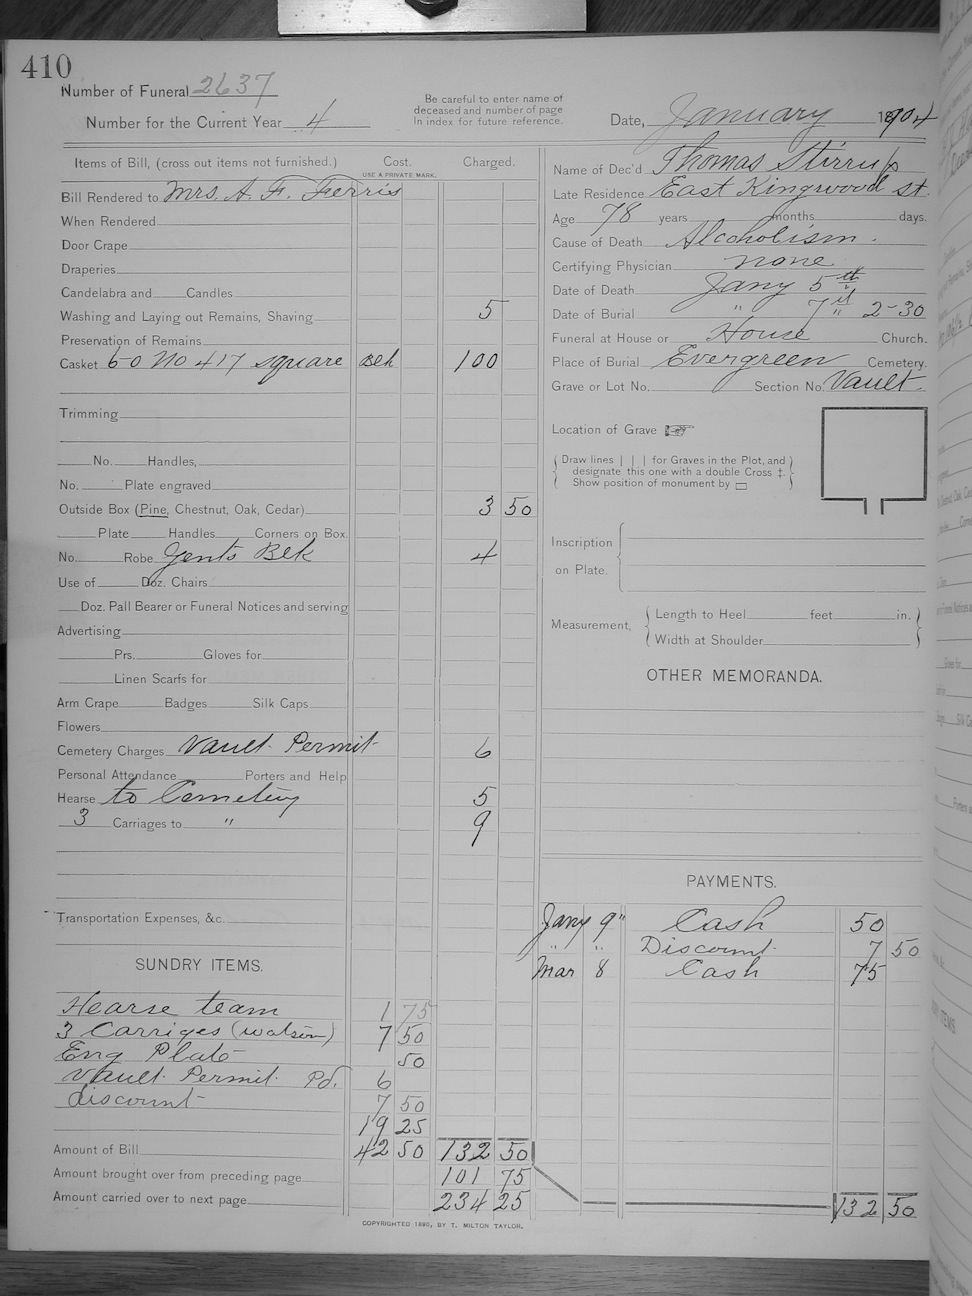 410
Number of Funeral 2637
Number for the Current Year 4
Be careful to enter name of
deceased and number of page
In index for future reference.
Date, January 1904
Items of Bill, (cross out items not furnished.) Cost. Charged.
USE A PRIVATE MARK.
Bill Rendered to Mrs. A. F. Ferris
When Rendered
Door Crape
Draperies
Candelabra and Candles
Washing and Laying out Remains, Shaving 5
Preservation of Remains
Casket 6-0 No 417 square Blk 100
Trimming
No. Handles,
No. Plate engraved
Outside Box (Pine, Chestnut, Oak, Cedar) 3 50
Plate Handles Corners on Box.
No. Robe Gents Blk 4
Use of Doz. Chairs
Doz. Pall Bearer or Funeral Notices and serving
Advertising
Prs. Gloves for
Linen Scarfs for
Arm Crape Badges Silk Caps
Flowers
Cemetery Charges Vault Permit 6
Personal Attendance Porters and Help
Hearse to Cemetery 5
3 Carriages to " 9
Transportation Expenses, &c.
SUNDRY ITEMS.
Hearse team 1 75
3 Carriges (Watson) 7 50
Eng Plate 50
Vault Permit Pd. 6
discount 7 50
19 25
Amount of Bill 42 50 132 50
Amount brought over from preceding page 101 75
Amount carried over to next page 234 25
COPYRIGHTED 1890, BY T. MILTON TAYLOR.
Name of Dec'd Thomas Stirrup
Late Residence East Kingwood St.
Age 78 years months days.
Cause of Death Alcoholism.
Certifying Physician none
Date of Death Jany 5th
Date of Burial " 7" 2-30
Funeral at House or House Church.
Place of Burial Evergreen Cemetery.
Grave or Lot No. Section No. Vault.
Location of Grave
Draw lines | | | for Graves in the Plot, and
designate this one with a double Cross ‡.
Show position of monument by □
Inscription
on Plate.
Measurement, Length to Heel feet in.
Width at Shoulder
OTHER MEMORANDA.
PAYMENTS.
Jany 9" Cash 50
" " Discount 7 50
Mar 8 Cash 75
132 50